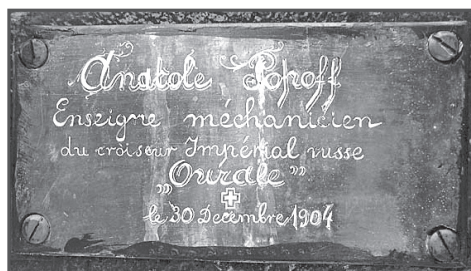 Anatole Popoff
Enseigne méchanicien
du croiseur Impérial russe
„Ourale”
le 30 Decembre 1904